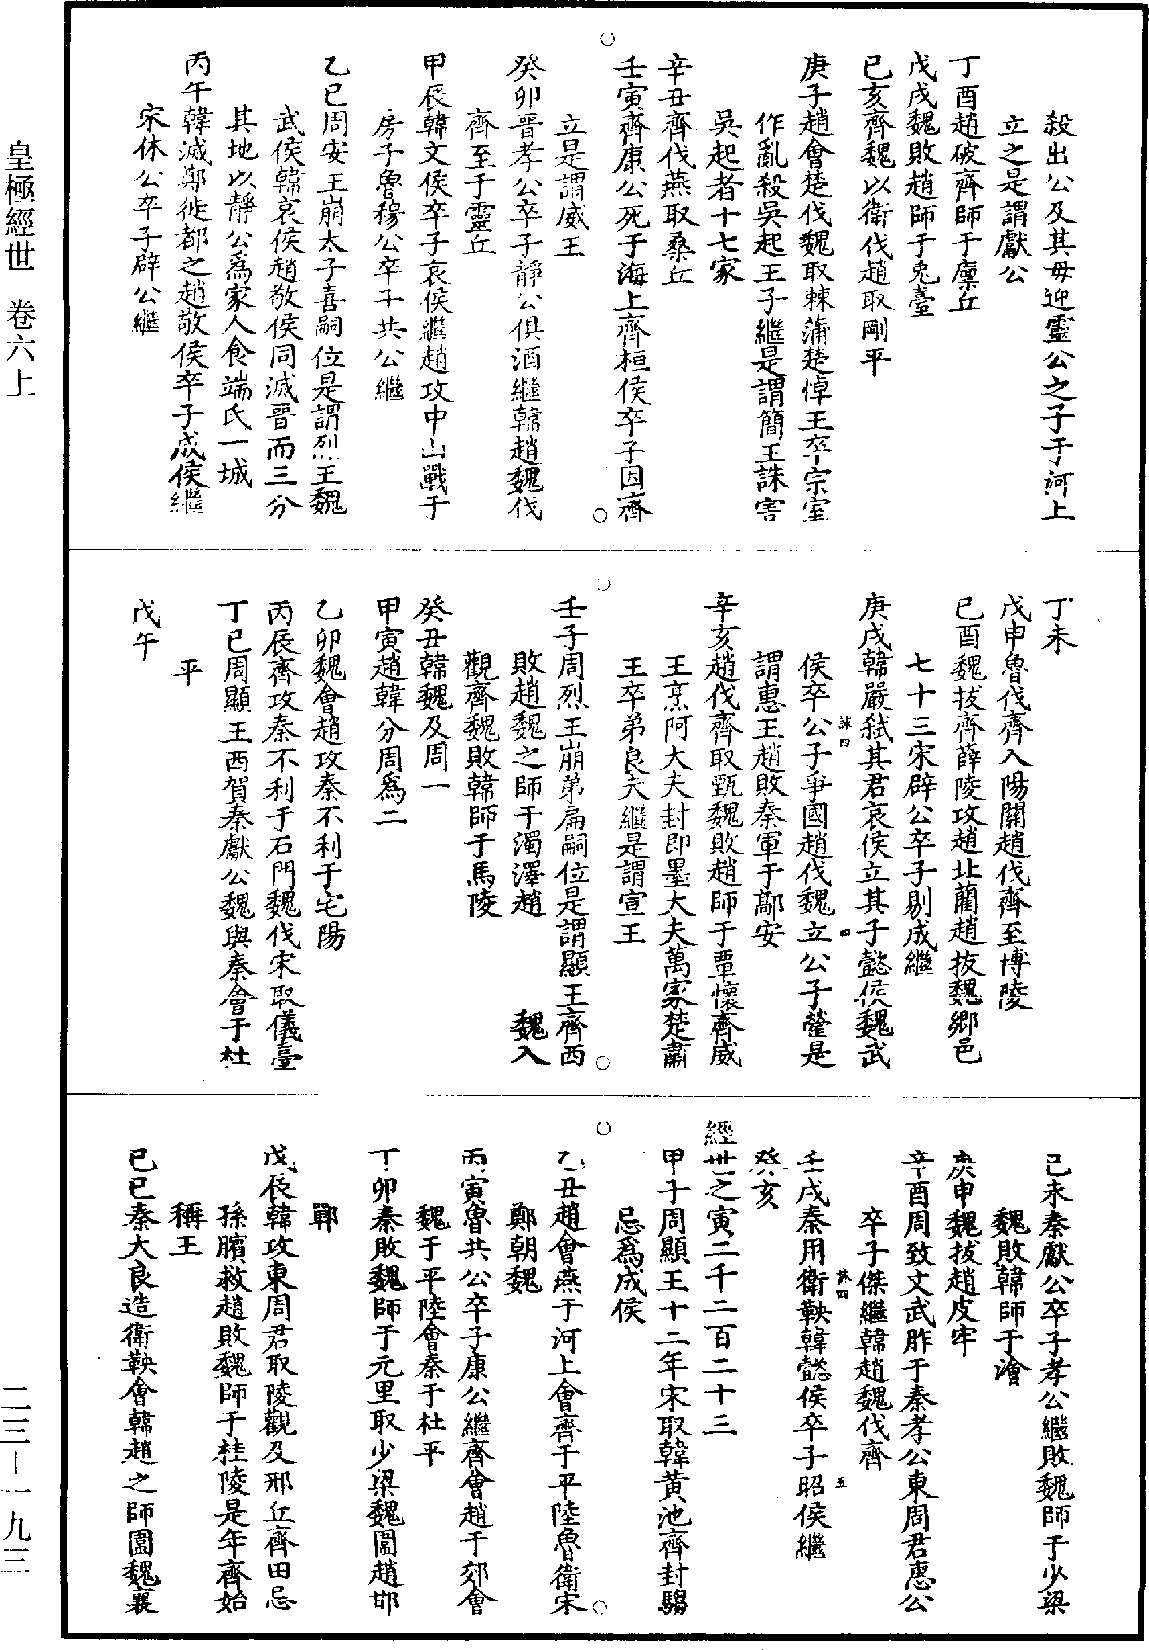 殺出公及其母迎靈公之子于河上
立之是謂獻公
丁酉趙破齊師于廩丘
戊戌魏敗趙師于兎臺
己亥齊魏以衛伐趙取剛平
庚子趙會楚伐魏取棘蒲楚悼王卒宗室
作亂殺吳起王子繼是謂簡王誅害
吳起者十七家
辛丑齊伐燕取桑丘
壬寅齊康公死于海上齊桓侯卒子因齊
立是謂威王
癸卯晉孝公卒子靜公俱酒繼韓趙魏伐
齊至于靈丘
甲辰韓文侯卒子哀侯繼趙攻中山戰于
房子魯穆公卒子共公繼
乙巳周安王崩太子喜嗣位是謂烈王魏
武侯韓哀侯趙敬侯同滅晉而三分
其地以靜公爲家人食端氏一城
丙午韓滅鄭徙都之趙敬侯卒子成侯繼
宋休公卒子辟公繼
丁未
戊申魯伐齊入陽關趙伐齊至博陵
己酉魏拔齊薛陵攻趙北藺趙拔魏鄉邑
七十三宋辟公卒子剔成繼
庚戌韓嚴弒其君哀侯立其子懿侯魏武
侯卒公子爭國趙伐魏立公子罃是
謂惠王趙敗秦軍于鄗安
辛亥趙伐齊取甄魏敗趙師于覃懷齊威
王烹阿大夫封即墨大夫萬家楚肅
王卒弟良夫繼是謂宣王
壬子周烈王崩弟扁嗣位是謂顯王齊西
敗趙魏之師于濁澤趙 魏入
觀齊魏敗韓師于馬陵
癸丑韓魏及周一
甲寅趙韓分周爲二
乙卯魏會趙攻秦不利于宅陽
丙辰齊攻秦不利于石門魏伐宋取儀臺
丁巳周顯王西賀秦獻公魏與秦會于杜
平
戊午
己未秦獻公卒子孝公繼敗魏師于少梁
魏敗韓師于澮
庚申魏拔趙皮牢
辛酉周致文武胙于秦孝公東周君惠公
卒子傑繼韓趙魏伐齊
壬戌秦用衛鞅韓懿侯卒子昭侯繼
癸亥
經世之寅二千二百二十三
甲子周顯王十二年宋取韓黃池齊封騶
忌爲成侯
乙丑趙會燕于河上會齊于平陸魯衛宋
鄭朝魏
丙寅魯共公卒子康公繼齊會趙于郊會
魏于平陸會秦于杜平
丁卯秦敗魏師于元里取少梁魏圍趙邯
鄲
戊辰韓攻東周君取陵觀及邢丘齊田忌
孫臏救趙敗魏師于桂陵是年齊始
稱王
己巳秦大良造衛鞅會韓趙之師圍魏襄
皇極經世 卷六上
二三－一九三